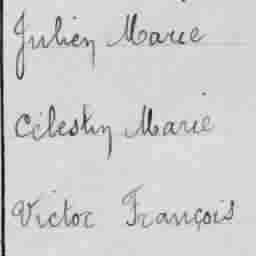 Julien Marie
Célestin Marie
Victor François